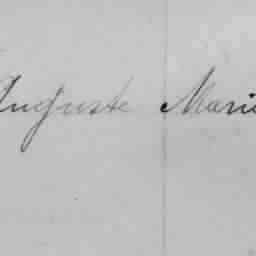 Auguste Marie